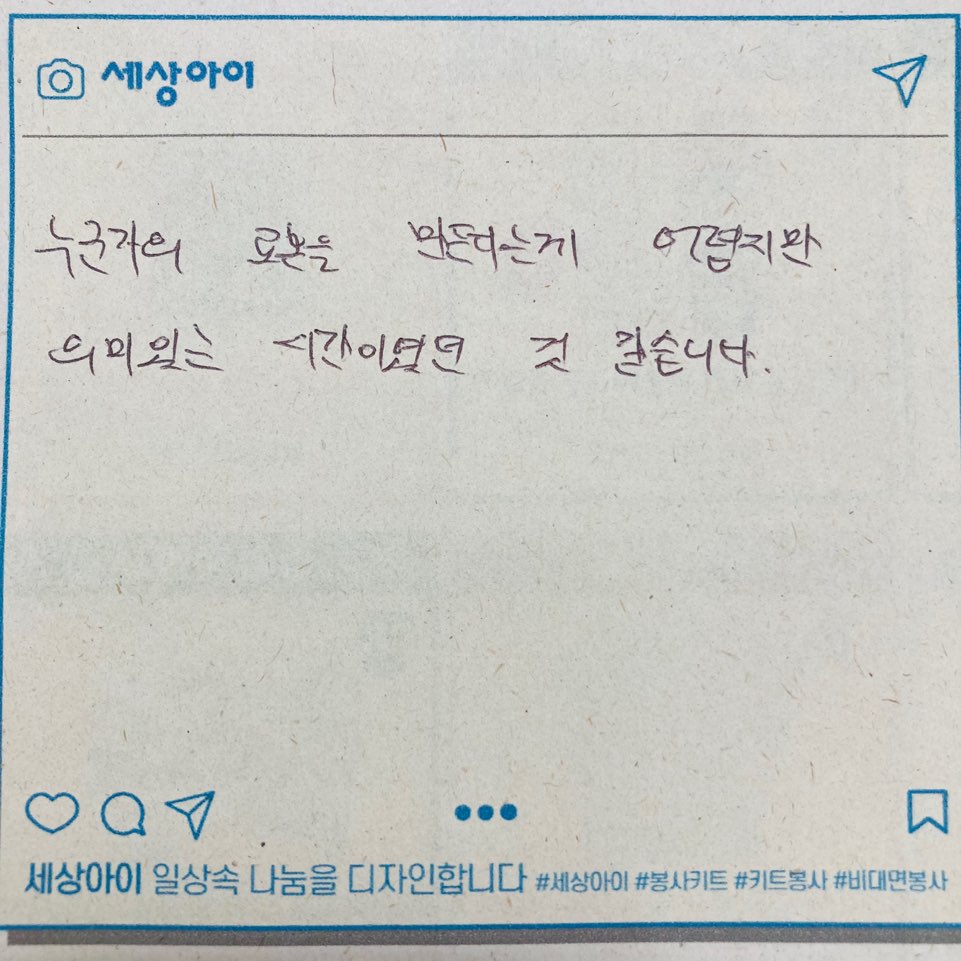 세상아이
누군가의 만든다는게 어렵지만
의미있는 시간이였던 것 같습니다.
세상아이 일상속 나눔을 디자인합니다 #세상아이 #봉사키트 #키트봉사 #비대면봉사